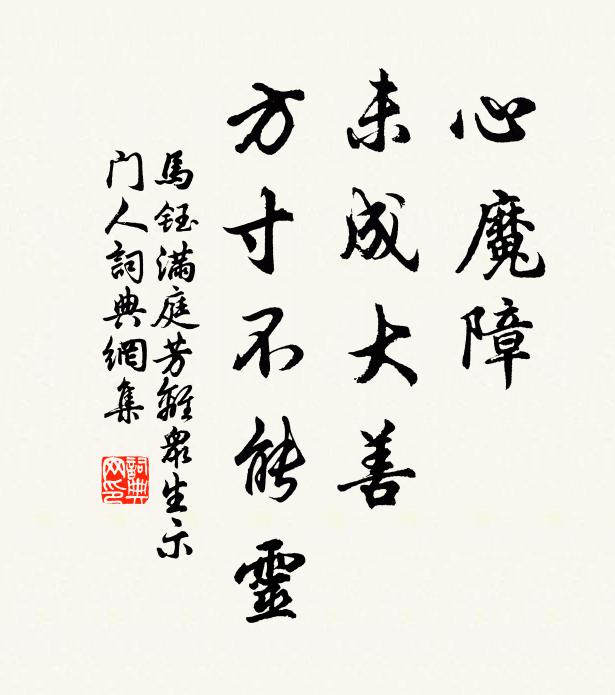 心魔障
未成大善
方寸不能靈
馬鈺滿庭芳離眾生示
门人詞典網集
詞典
网印